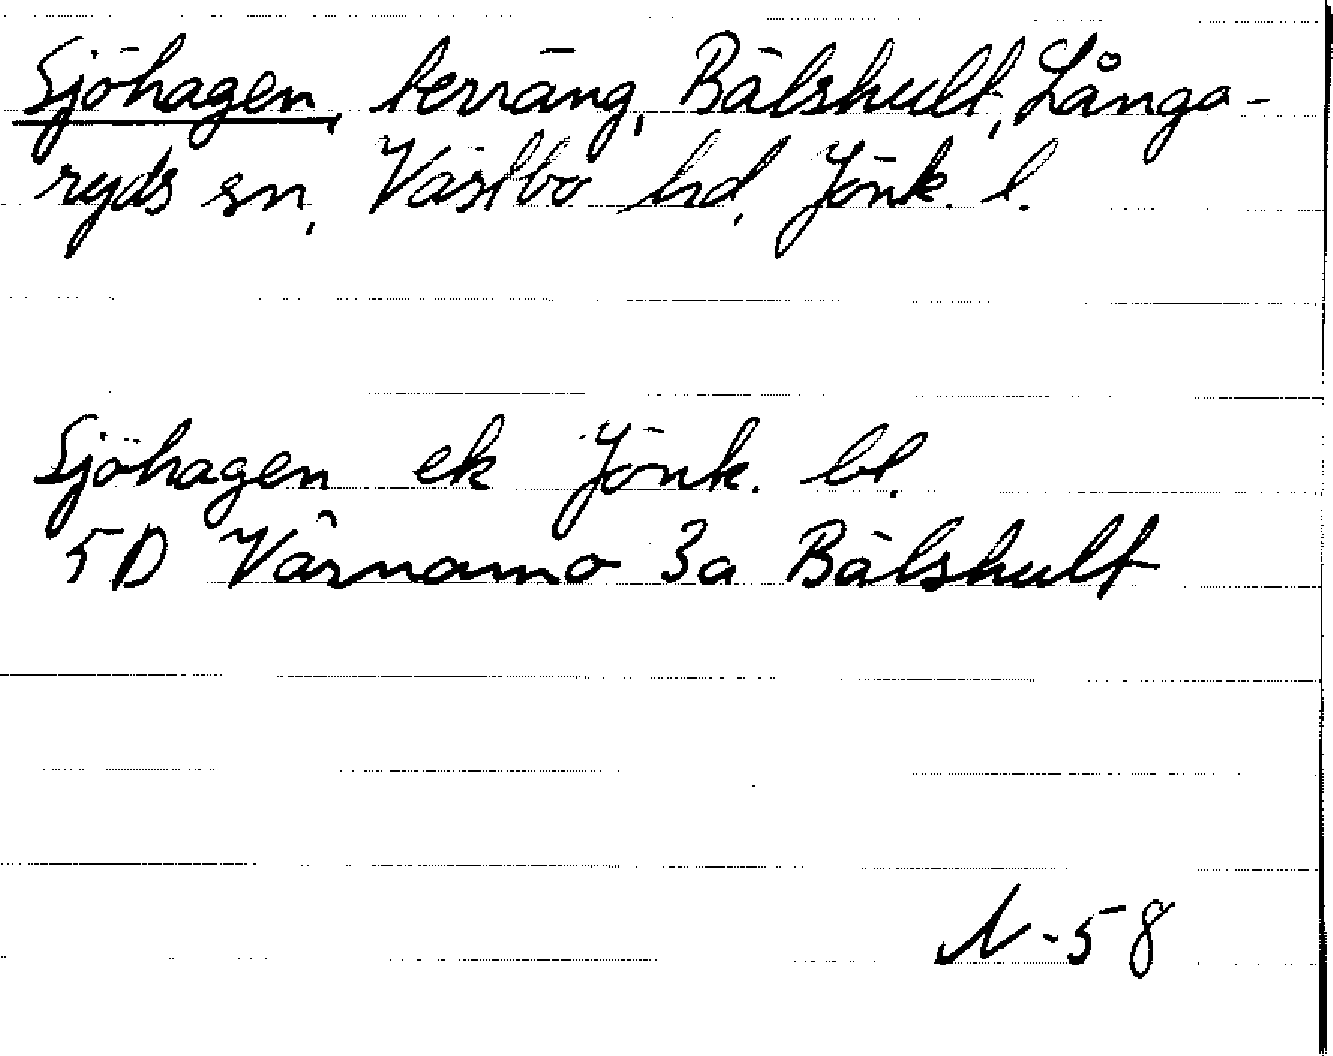 Sjöhagen, terräng, Bälshult, Långa-
ryds sn, Västbo hd, Jönk. l.
Sjöhagen ek Jönk. bl.
5D Värnamo 3a Bälshult
N-58